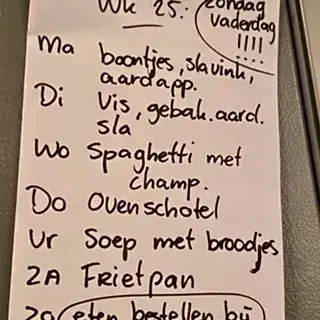 Wk 25:
zondag
vaderdag
!!!!
Ma boontjes, slavink,
aardapp.
Di Vis, gebak. aard.
sla
Wo Spaghetti met
champ.
Do Ovenschotel
Vr Soep met broodjes
ZA Frietpan
Zo eten bestellen bij